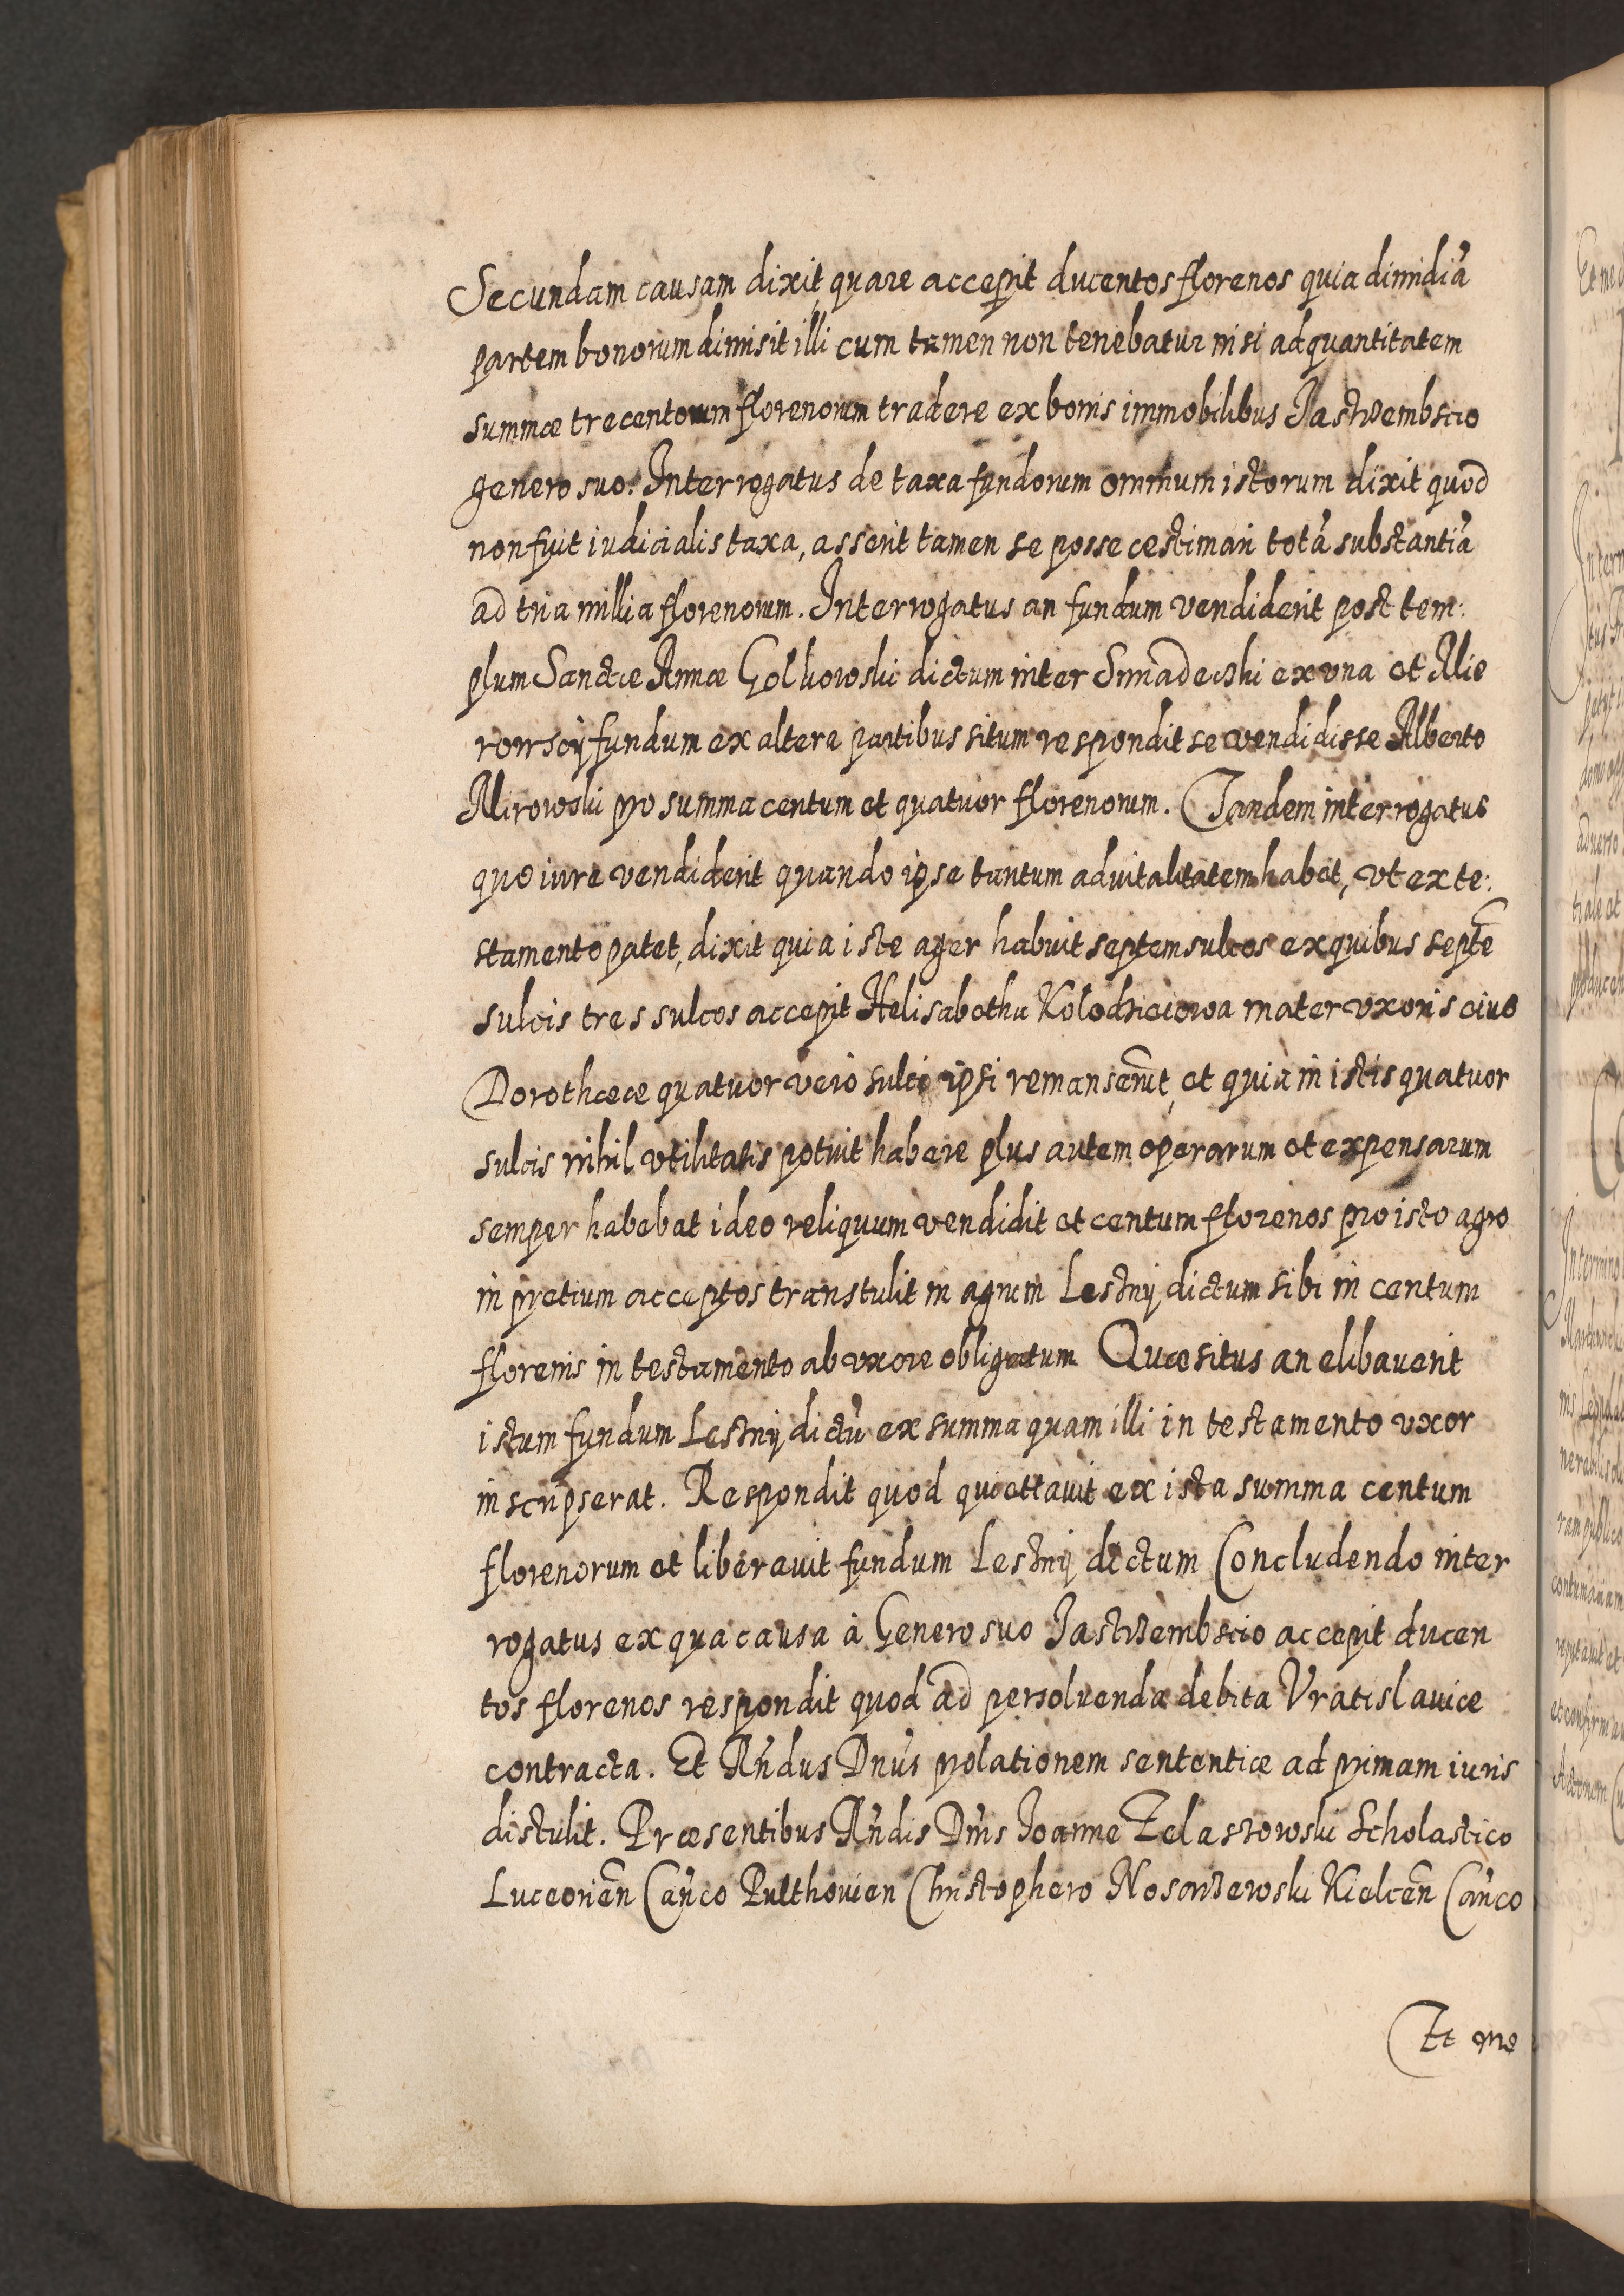 Secundam causam dixit, quare accepit ducentos florenos quia dimidiã
partem bonorum dimisit illi cum tamen non tenebatur nisi ad quantitatem
summæ trecentorum florenorum tradere ex bonis immobilibus Jastrzembscio
genero suo. Interrogatus de taxa fundorum omnium istorum dixit quod
non fuit iudicialis taxa, asserit tamen se posse æstimari totã substantiã
ad tria millia florenorum. Interrogatus an fundum vendiderit post tem:
plum Sanctæ Annæ Golkowski dictum inter Sniadeczki ex vna et Mie
rowscij fundum ex altera partibus situm respondit se vendidisse Alberto
Mirowski pro summa centum et quatuor florenorum. Tandem interrogatus
quo iure vendiderit quando ipse tantum aduitalitatem habet, vt ex te:
stamento patet, dixit quia iste ager habuit septem sulcos ex quibus septẽ
sulcis tres sulcos accepit Helisabetha Kolodzieiowa mater vxoris eius
Dorotheæ quatuor vero sulci ipsi remanserũt, et quia in istis quatuor
sulcis nihil vtilitatis potuit habere plus autem operarum et expensarum
semper habebat ideo reliquum vendidit et centum florenos pro isto agro
in pretium acceptos transtulit in agrum Lestnij dictum sibi in centum
florenis in testamento ab vxore obligatum Quæsitus an elibauerit
istum fundum Lestnij dictũ ex summa quam illi in testamento vxor
inscripserat. Respondit quod quiettauit ex ista summa centum
florenorum et liberauit fundum Lestnij dictum Concludendo inter
rogatus ex qua causa à Genero suo Jastrzembscio accepit ducen
tos florenos respondit quod ad persoluenda debita Vratislauiæ
contracta. Et Rñdus Dnus prolationem sententiæ ad primam iuris
distulit. Præsentibus Rñdis Dñis Joanne Zelastowski Scholastico
Luceoriẽn Cañco Pulthouien Christophero Nosarzewski Kielcẽn Cañco
Et me